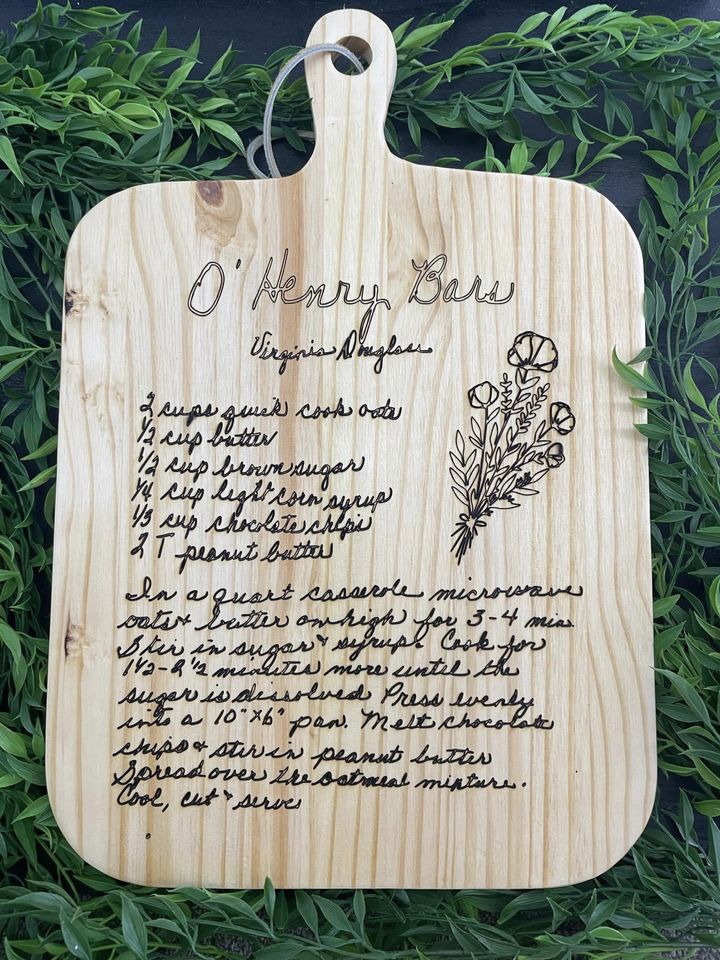 O'Henry Bars
Virginia Douglass
2 cups quick cook oats
1/2 cup butter
1/2 cup brown sugar
1/4 cup light corn syrup
1/3 cup chocolate chips
2 T peanut butter
In a quart casserole microwave
oats & butter on high for 3-4 min.
Stir in sugar & syrup. Cook for
1 1/2 - 2 1/2 minutes more until the
sugar is dissolved Press evenly
into a 10" x 6" pan. Melt chocolate
chips & stir in peanut butter
Spread over the oatmeal mixture.
Cool, cut & serve